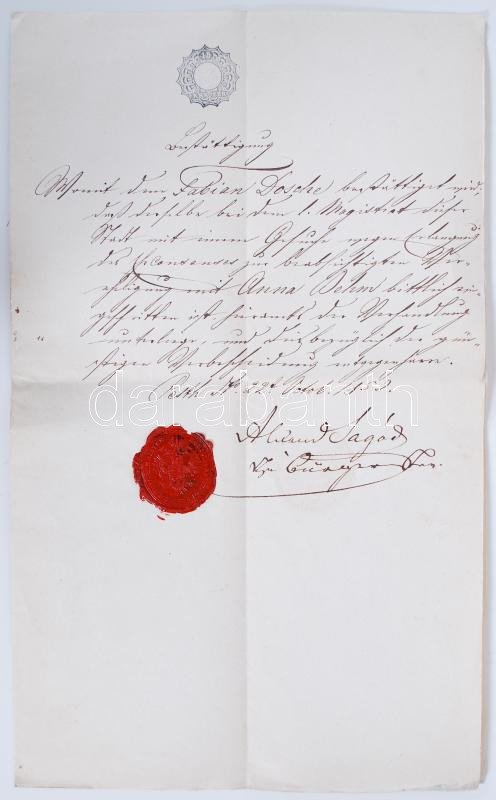 Bestättigung
Womit dem Fabian Dosche bestättiget wird,
daß derselbe bei dem l. Magistrat dieser
Stadt mit einem Gesuche wegen Erlangung
des Eheconsenses zur beabsichtigten Ver-
ehligung mit Anna Behm bittlich ein-
geschritten ist hieramts der Verhandlung
unterliege, und diesbezüglich der gün-
stigen Verbescheidung entgegenharre.
Pesth 22t Octob.
darabanth
Sagód
Bürger